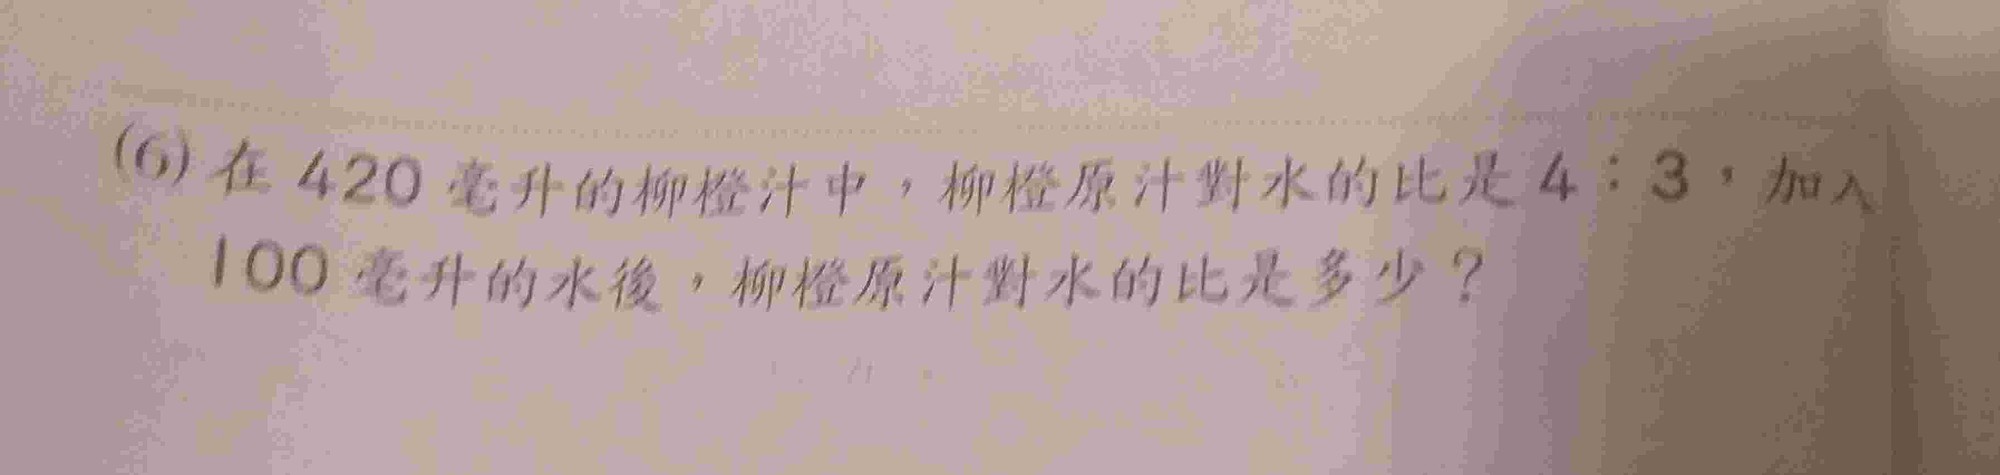 (6) 在 420 毫升的柳橙汁中，柳橙原汁對水的比是 4：3，加入
100 毫升的水後，柳橙原汁對水的比是多少？